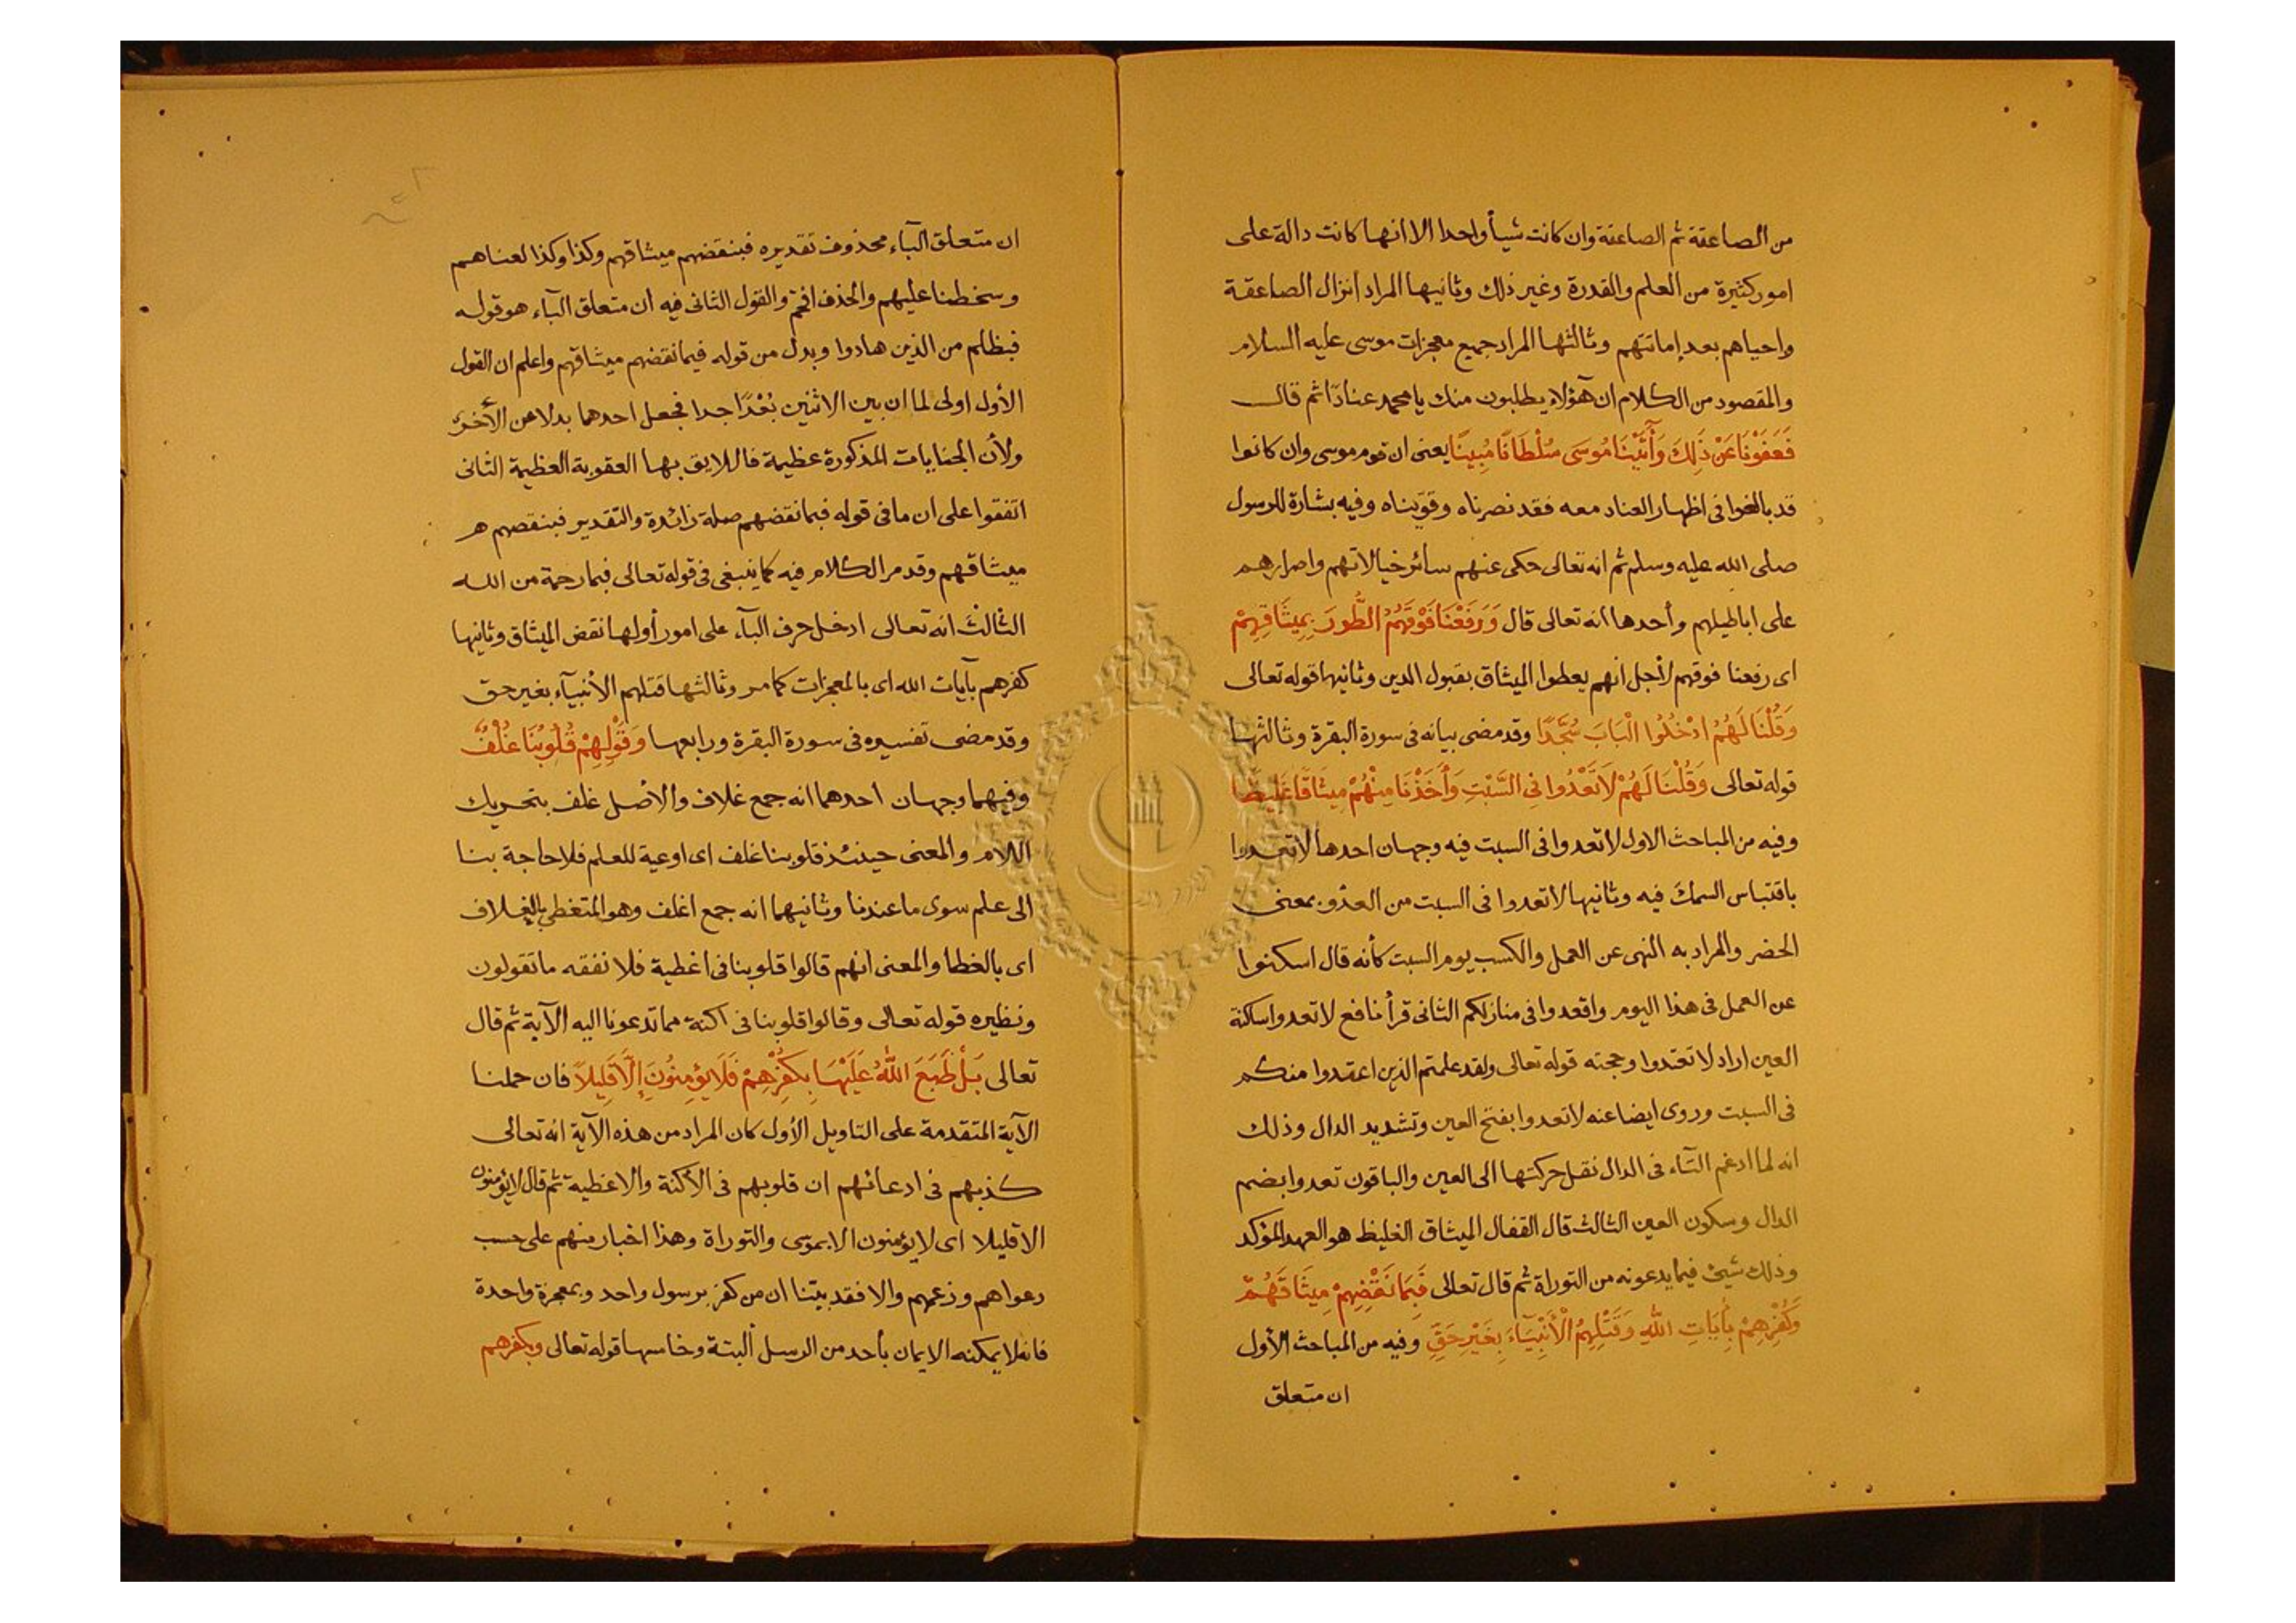 من الصاعقة ثم الصاعقة وان كانت شيأ واحدا الا انها كانت دالة على
امور كثيرة من العلم والقدرة وغير ذلك وثانيها المراد انزال الصاعقة
واحياهم بعد إماتتهم وثالثها المراد جميع معجزات موسى عليه السلام
والمقصود من الكلام ان هؤلاء يطلبون منك يا محمد عنادًا ثم قال
فَعَفَوْنَا عَنْ ذَلِكَ وَأَتَيْنَا مُوسَى سُلْطَانًا مُبِينًا يعنى ان قوم موسى وان كانوا
قد بالغوا فى اظهار العناد معه فقد نصرناه وقويناه وفيه بشارة للرسول
صلى الله عليه وسلم ثم انه تعالى حكى عنهم سائر خيالاتهم واصرارهم
على اباطيلهم وأحدها انه تعالى قال وَرَفَعْنَا فَوْقَهُمُ الطُّورَ بِمِيثَاقِهِمْ
اى رفعنا فوقهم لأجل انهم يعطوا الميثاق بقبول الدين وثانيها قوله تعالى
وَقُلْنَا لَهُمُ ادْخُلُوا الْبَابَ سُجَّدًا وقد مضى بيانه فى سورة البقرة وثالثها
قوله تعالى وَقُلْنَا لَهُمْ لَا تَعْدُوا فِى السَّبْتِ وَأَخَذْنَا مِنْهُمْ مِيثَاقًا غَلِيظًا
وفيه من المباحث الاول لا تعدوا فى السبت فيه وجهان احدها لا تعدوا
باقتباس السمك فيه وثانيها لا تعدوا فى السبت من العدو بمعنى
الحضر والمراد به النهى عن العمل والكسب يوم السبت كأنه قال اسكنوا
عن العمل فى هذا اليوم واقعدوا فى منازلكم الثانى قرأ نافع لا تعدوا ساكنة
العين اراد لا تعتدوا وحجته قوله تعالى ولقد علمتم الذين اعتدوا منكم
فى السبت وروى ايضا عنه لا تعدوا بفتح العين وتشديد الدال وذلك
انه لما ادغم التاء فى الدال نقل حركتها الى العين والباقون تعدوا بضم
الدال وسكون العين الثالث قال القفال الميثاق الغليظ هو العهد المؤكد
وذلك شيئ فيما يدعونه من التوراة ثم قال تعالى فَبِمَا نَقْضِهِمْ مِيثَاقَهُمْ
وَكُفْرِهِمْ بِأَيَاتِ اللهِ وَقَتْلِهِمُ الْأَنْبِيَآءَ بِغَيْرِ حَقٍّ وفيه من المباحث الأول
ان متعلق
ان متعلق البآء محذوف تقديره فبنقضهم ميثاقهم وكذا وكذا لعناهم
وسخطنا عليهم والحذف افخم والقول الثانى فيه ان متعلق البآء هو قوله
فبظلم من الذين هادوا وبدل من قوله فبما نقضهم ميثاقهم واعلم ان القول
الأول اولى لما ان بين الاثنين بُعْدًا جدا فجعل احدهما بدلا من الأخر
ولأن الجنايات المذكورة عظيمة فاللايق بها العقوبة العظيمة الثانى
اتفقوا على ان ما فى قوله فبما نقضهم صلة زائدة والتقدير فبنقضهم
ميثاقهم وقد مر الكلام فيه كما ينبغى فى قوله تعالى فبما رحمة من الله
الثالث انه تعالى ادخل حرف البآء على امور أولها نقض الميثاق وثانيها
كفرهم بآيات الله اى بالمعجزات كما مر وثالثها قتلهم الأنبيآء بغير حق
وقد مضى تفسيره فى سورة البقرة ورابعها وَقَوْلِهِمْ قُلُوبُنَا غُلْفٌ
وفيهما وجهان احدهما انه جمع غلاف والاصل غلف بتحريك
اللام والمعنى حينئذ قلوبنا غلف اى اوعية للعلم فلا حاجة بنا
الى علم سوى ما عندنا وثانيهما انه جمع اغلف وهو المتغطى بالغلاف
اى بالغطا والمعنى انهم قالوا قلوبنا فى اغطية فلا نفقه ما تقولون
ونظيره قوله تعالى وقالوا قلوبنا فى اكنة مما تدعونا اليه الآية ثم قال
تعالى بَلْ طَبَعَ اللهُ عَلَيْهَا بِكُفْرِهِمْ فَلَا يُؤمِنُونَ إِلَّا قَلِيلًا فان حملنا
الآية المتقدمة على التاويل الأول كان المراد من هذه الآية انه تعالى
كذبهم فى ادعائهم ان قلوبهم فى الأكنة والاغطية ثم قال لا يؤمنون
الا قليلا اى لا يؤمنون الا بموسى والتوراة وهذا اخبار منهم على حسب
دعواهم وزعمهم والا فقد بيتنا ان من كفر برسول واحد وبمعجزة واحدة
فانه لا يمكنه الايمان بأحد من الرسل ألبتة وخامسها قوله تعالى وبكفرهم